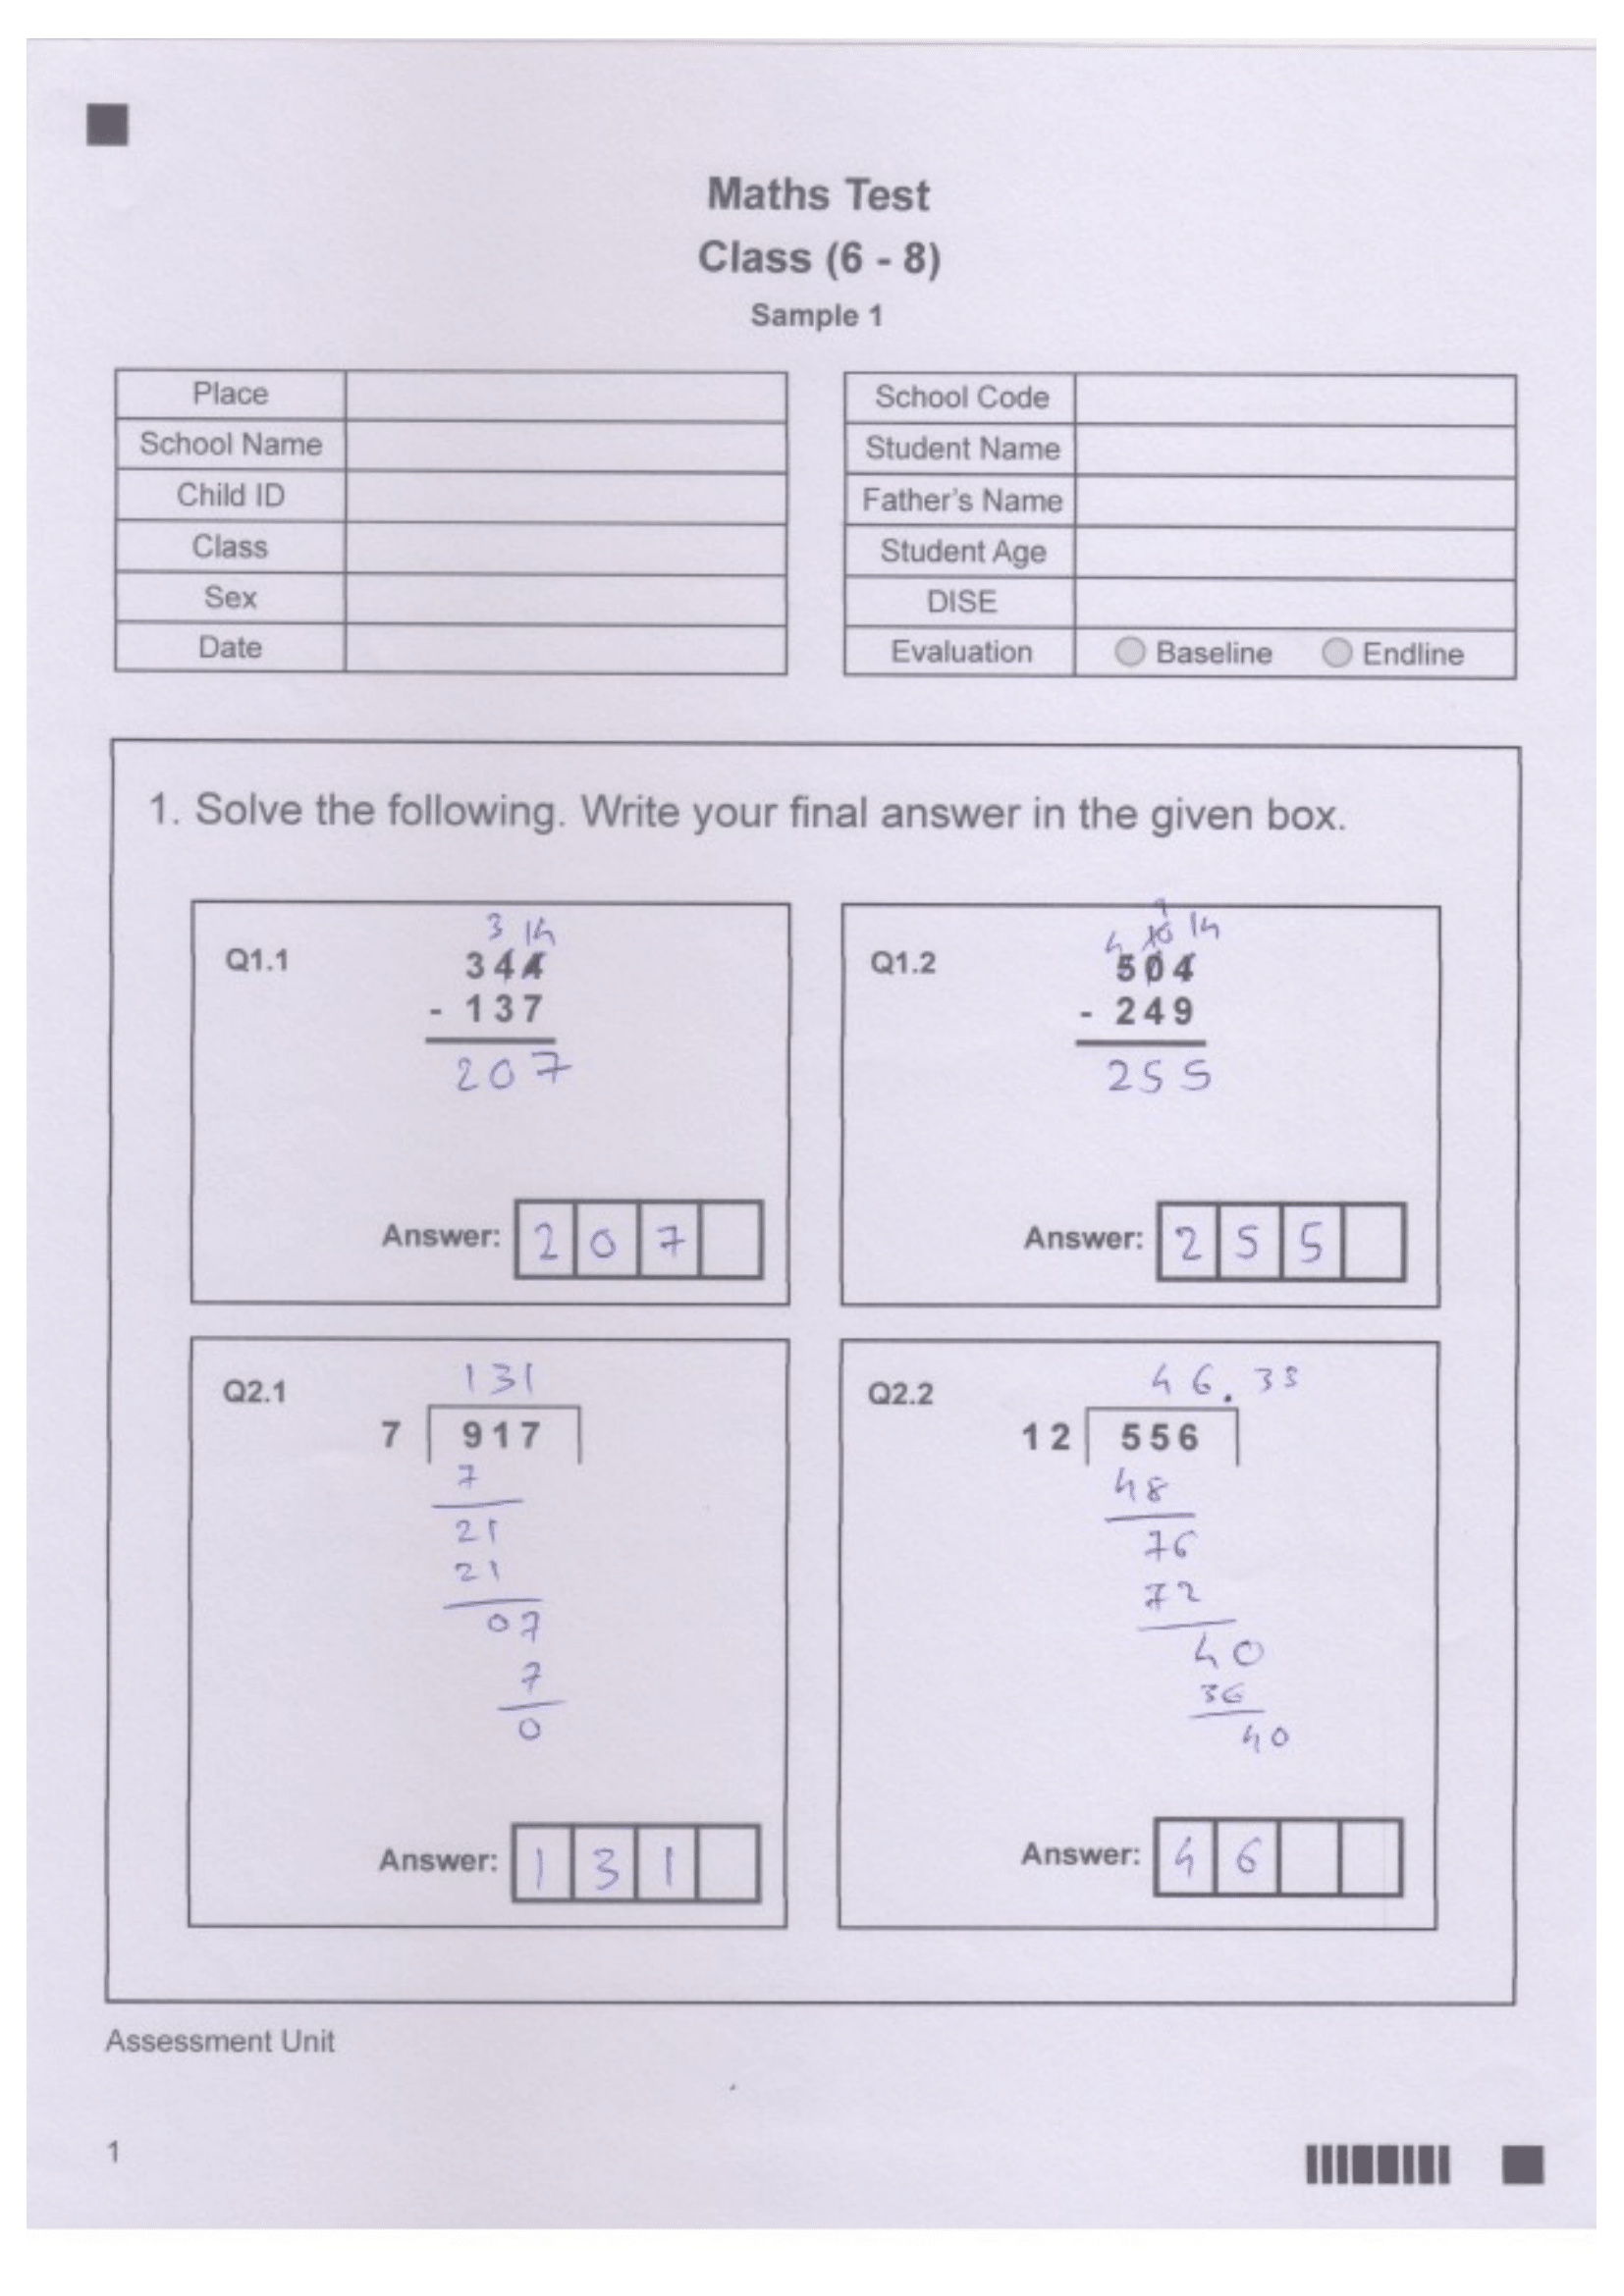 Maths Test
Class (6 - 8)
Sample 1
Place
School Name
Child ID
Class
Sex
Date
School Code
Student Name
Father's Name
Student Age
DISE
Evaluation Baseline Endline
1. Solve the following. Write your final answer in the given box.
Q1.1
3 14
344
- 137
207
Answer: 2 0 7
Q1.2
9
4 10 14
504
- 249
255
Answer: 2 5 5
Q2.1
131
7 917
7
21
21
07
7
0
Answer: 1 3 1
Q2.2
46.33
12 556
48
76
72
40
36
40
Answer: 4 6
Assessment Unit
1